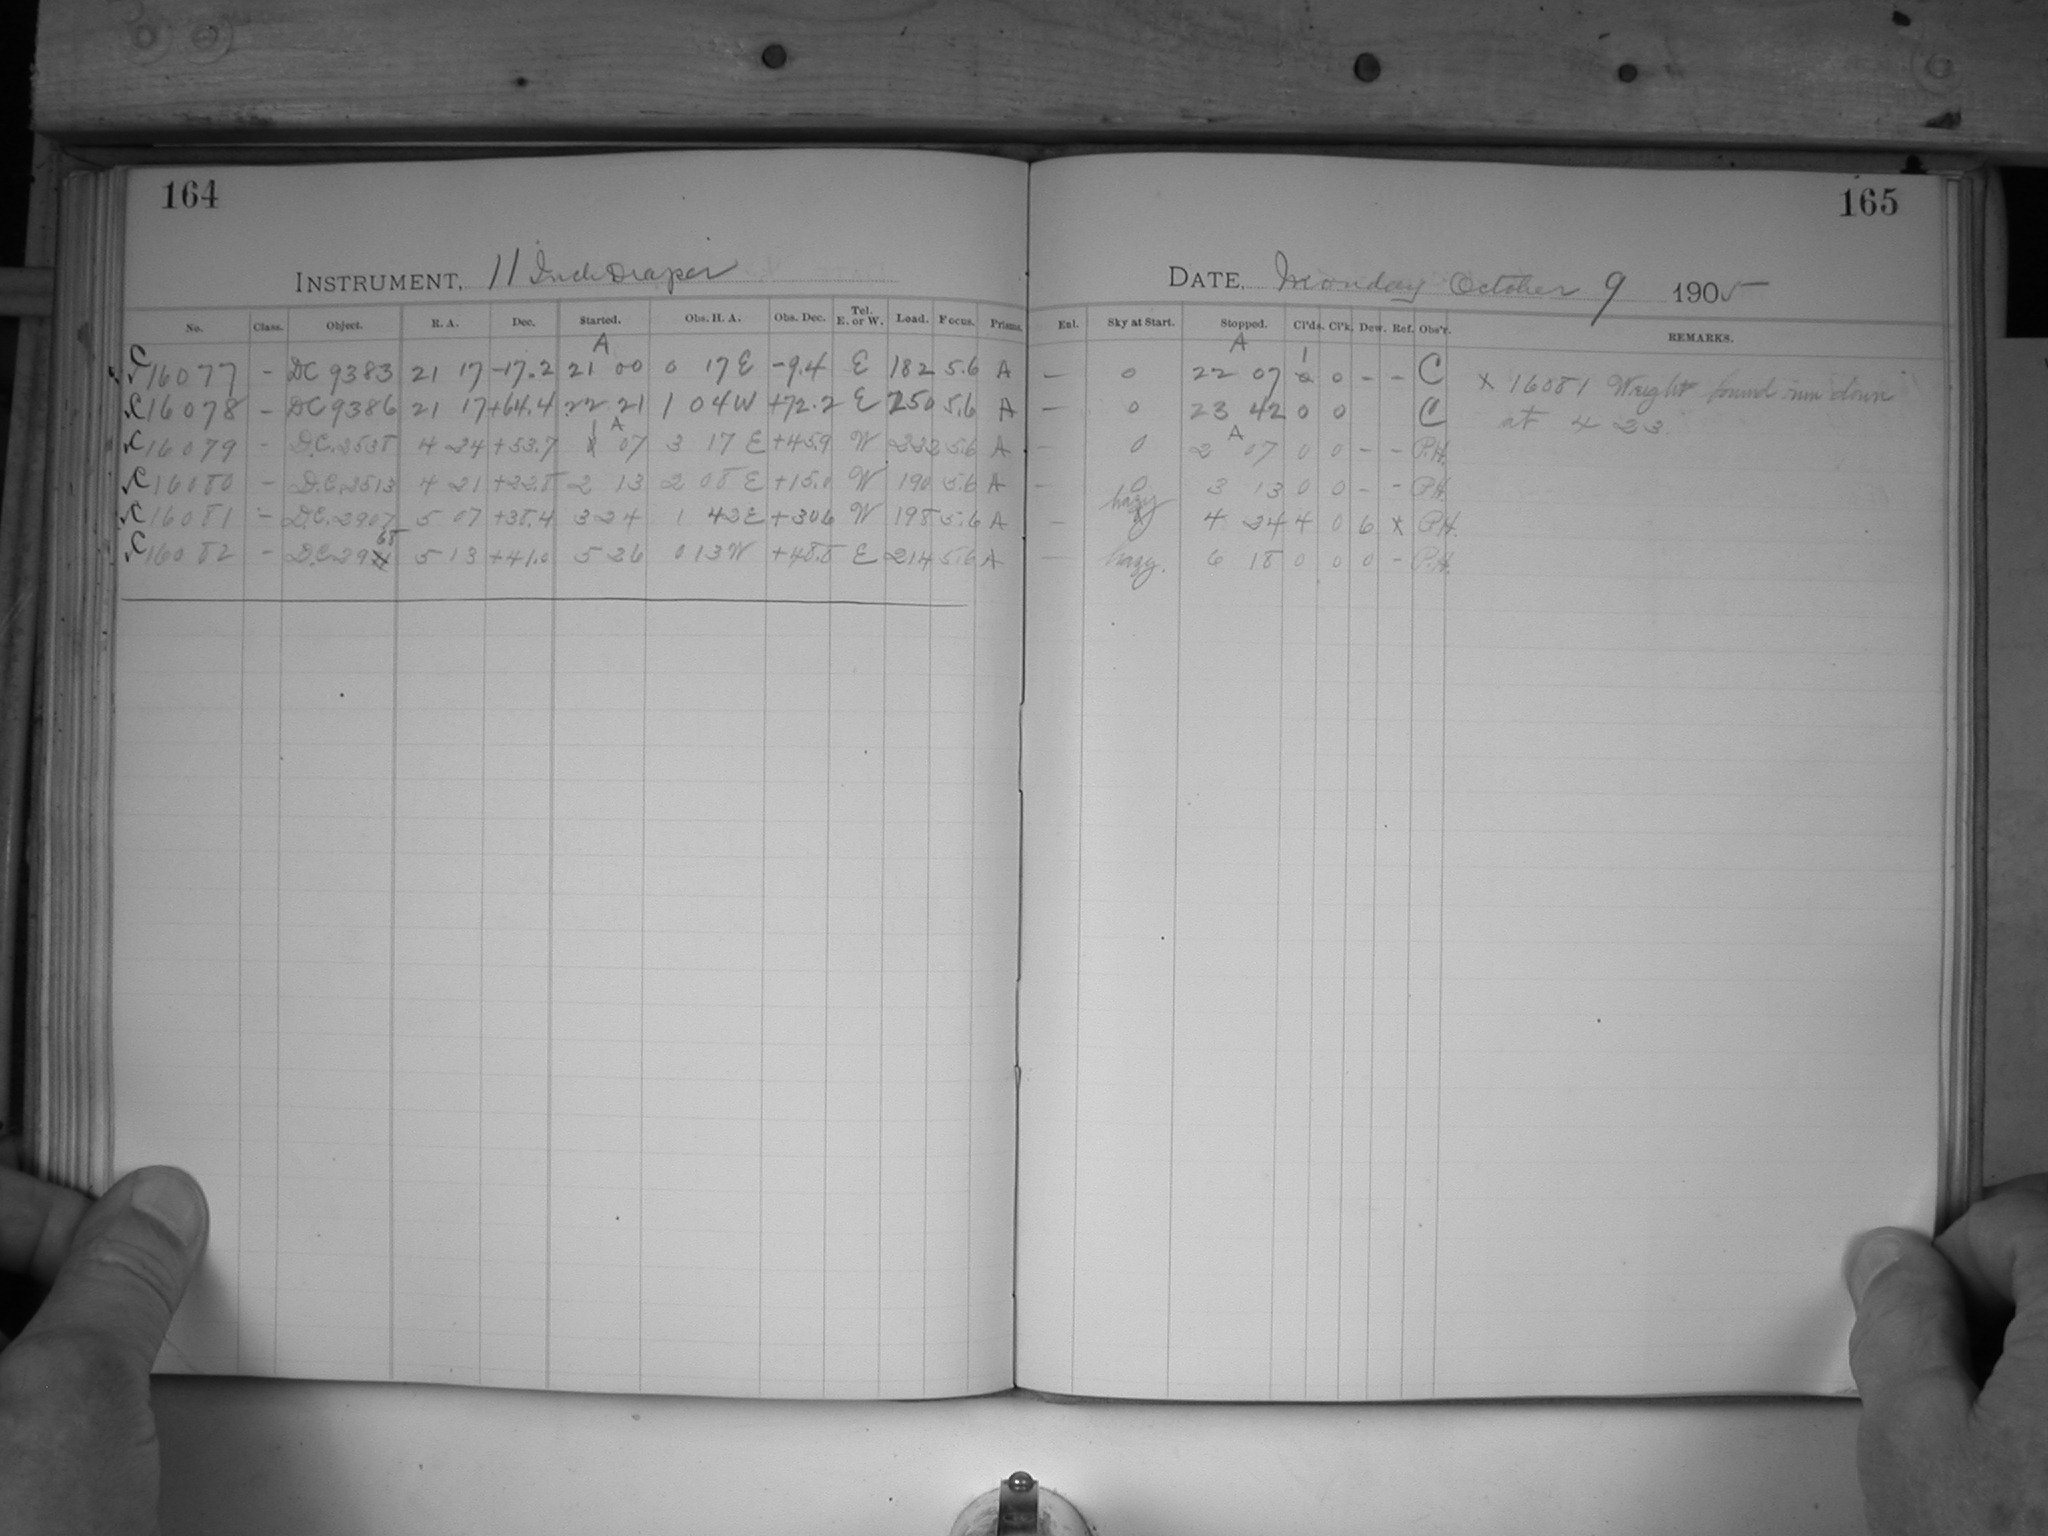 164
INSTRUMENT, 11 Inch Draper
No. Class. Object. R. A. Dec. Started. Obs. H. A. Obs. Dec. Tel. E. or W. Load. Focus. Prisms.
A
C 16077 - DC 9383 21 17 -17.2 21 00 0 17 E -9.4 E 182 5.6 A
C 16078 - DC 9386 21 17 +64.4 22 21 1 04 W +72.2 E 250 5.6 A
A
C 16079 - D.C. 2538 4 24 +53.7 1 07 3 17 E +45.9 W 232 5.6 A
C 16080 - D.C. 2513 4 21 +22.8 2 13 2 08 E +15.0 W 190 5.6 A
C 16081 - D.C. 2907 5 07 +38.4 3 24 1 42 E +30.6 W 198 5.6 A
68
C 16082 - D.C. 29 5 13 +41.0 5 26 0 13 W +48.8 E 214 5.6 A
165
DATE, Monday October 9 1905
Enl. Sky at Start. Stopped. Cl'ds. Cl'k. Dew. Ref. Obs'r. REMARKS.
A 1
— 0 22 07 0 0 - - C x 16081 Weight found run down
— 0 23 42 0 0 C at 4 23.
A
— 0 2 07 0 0 - - P.H.
— 0 3 13 0 0 - - P.H.
— hazy 4 24 4 0 6 x P.H.
— hazy. 6 18 0 0 0 - P.H.